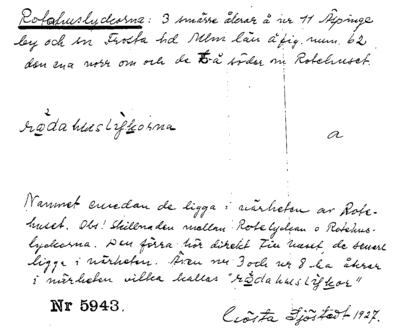 Rotahuslyckorna: 3 smärre åkrar å nr 11 Äspinge
by och sn Frosta hd Mlm län å fig. num. 62
den ena norr om och de två söder om Rotehuset.
rädahuslykorna a
Namnet emedan de ligga i närheten av Rote-
huset. Obs! Skillnaden mellan Rotelyckan o Rotehus-
lyckorna. Den förra hör direkt till huset, de senare
ligga i närheten. Även nr 3 och nr 8 ha åkrar
i närheten vilka kallas "rädahuslykor"
Nr 5943.
Gösta Sjöstedt 1927.